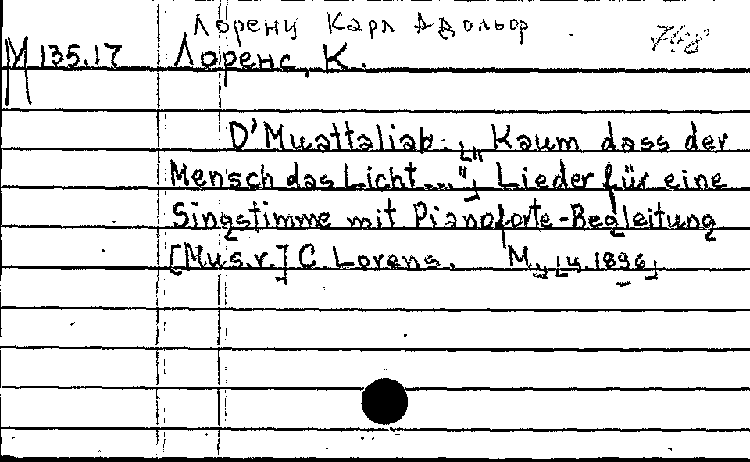 Лоренц Карл Адольф
M 135.17 Лоренс, К.
D'Muattaliab. [„Kaum dass der
Mensch das Licht..."] Lieder für eine
Singstimme mit Pianoforte-Begleitung
[Mus.v.] C. Lorens. M., [4.1896]